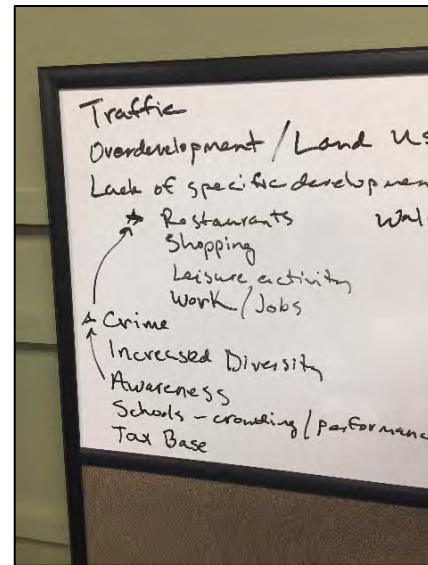 Traffic
Overdevelopment / Land Us
Lack of specific developmen
Restaurants Wal
Shopping
Leisure activity
Work / Jobs
Crime
Increased Diversity
Awareness
Schools - crowding / performanc
Tax Base